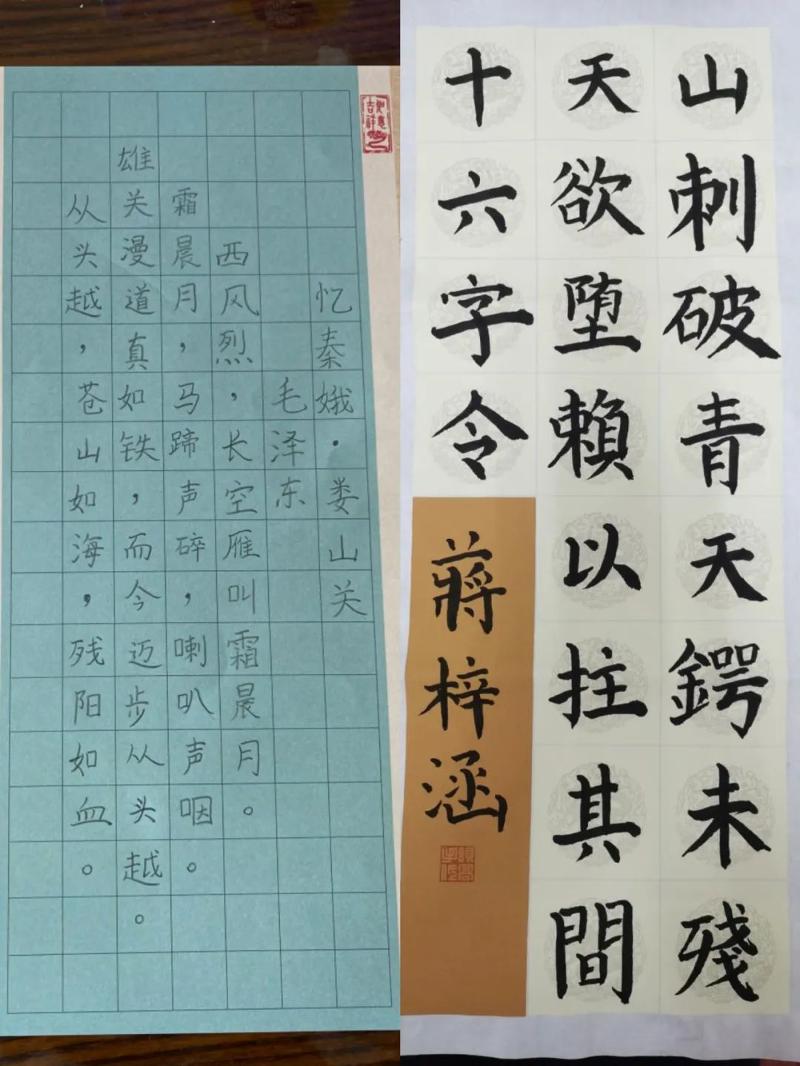 忆秦娥·娄山关
毛泽东
西风烈，长空雁叫霜晨月。
霜晨月，马蹄声碎，喇叭声咽。
雄关漫道真如铁，而今迈步从头越。
从头越，苍山如海，残阳如血。
山刺破青天鍔未殘
天欲堕賴以拄其間
十六字令
蔣梓涵